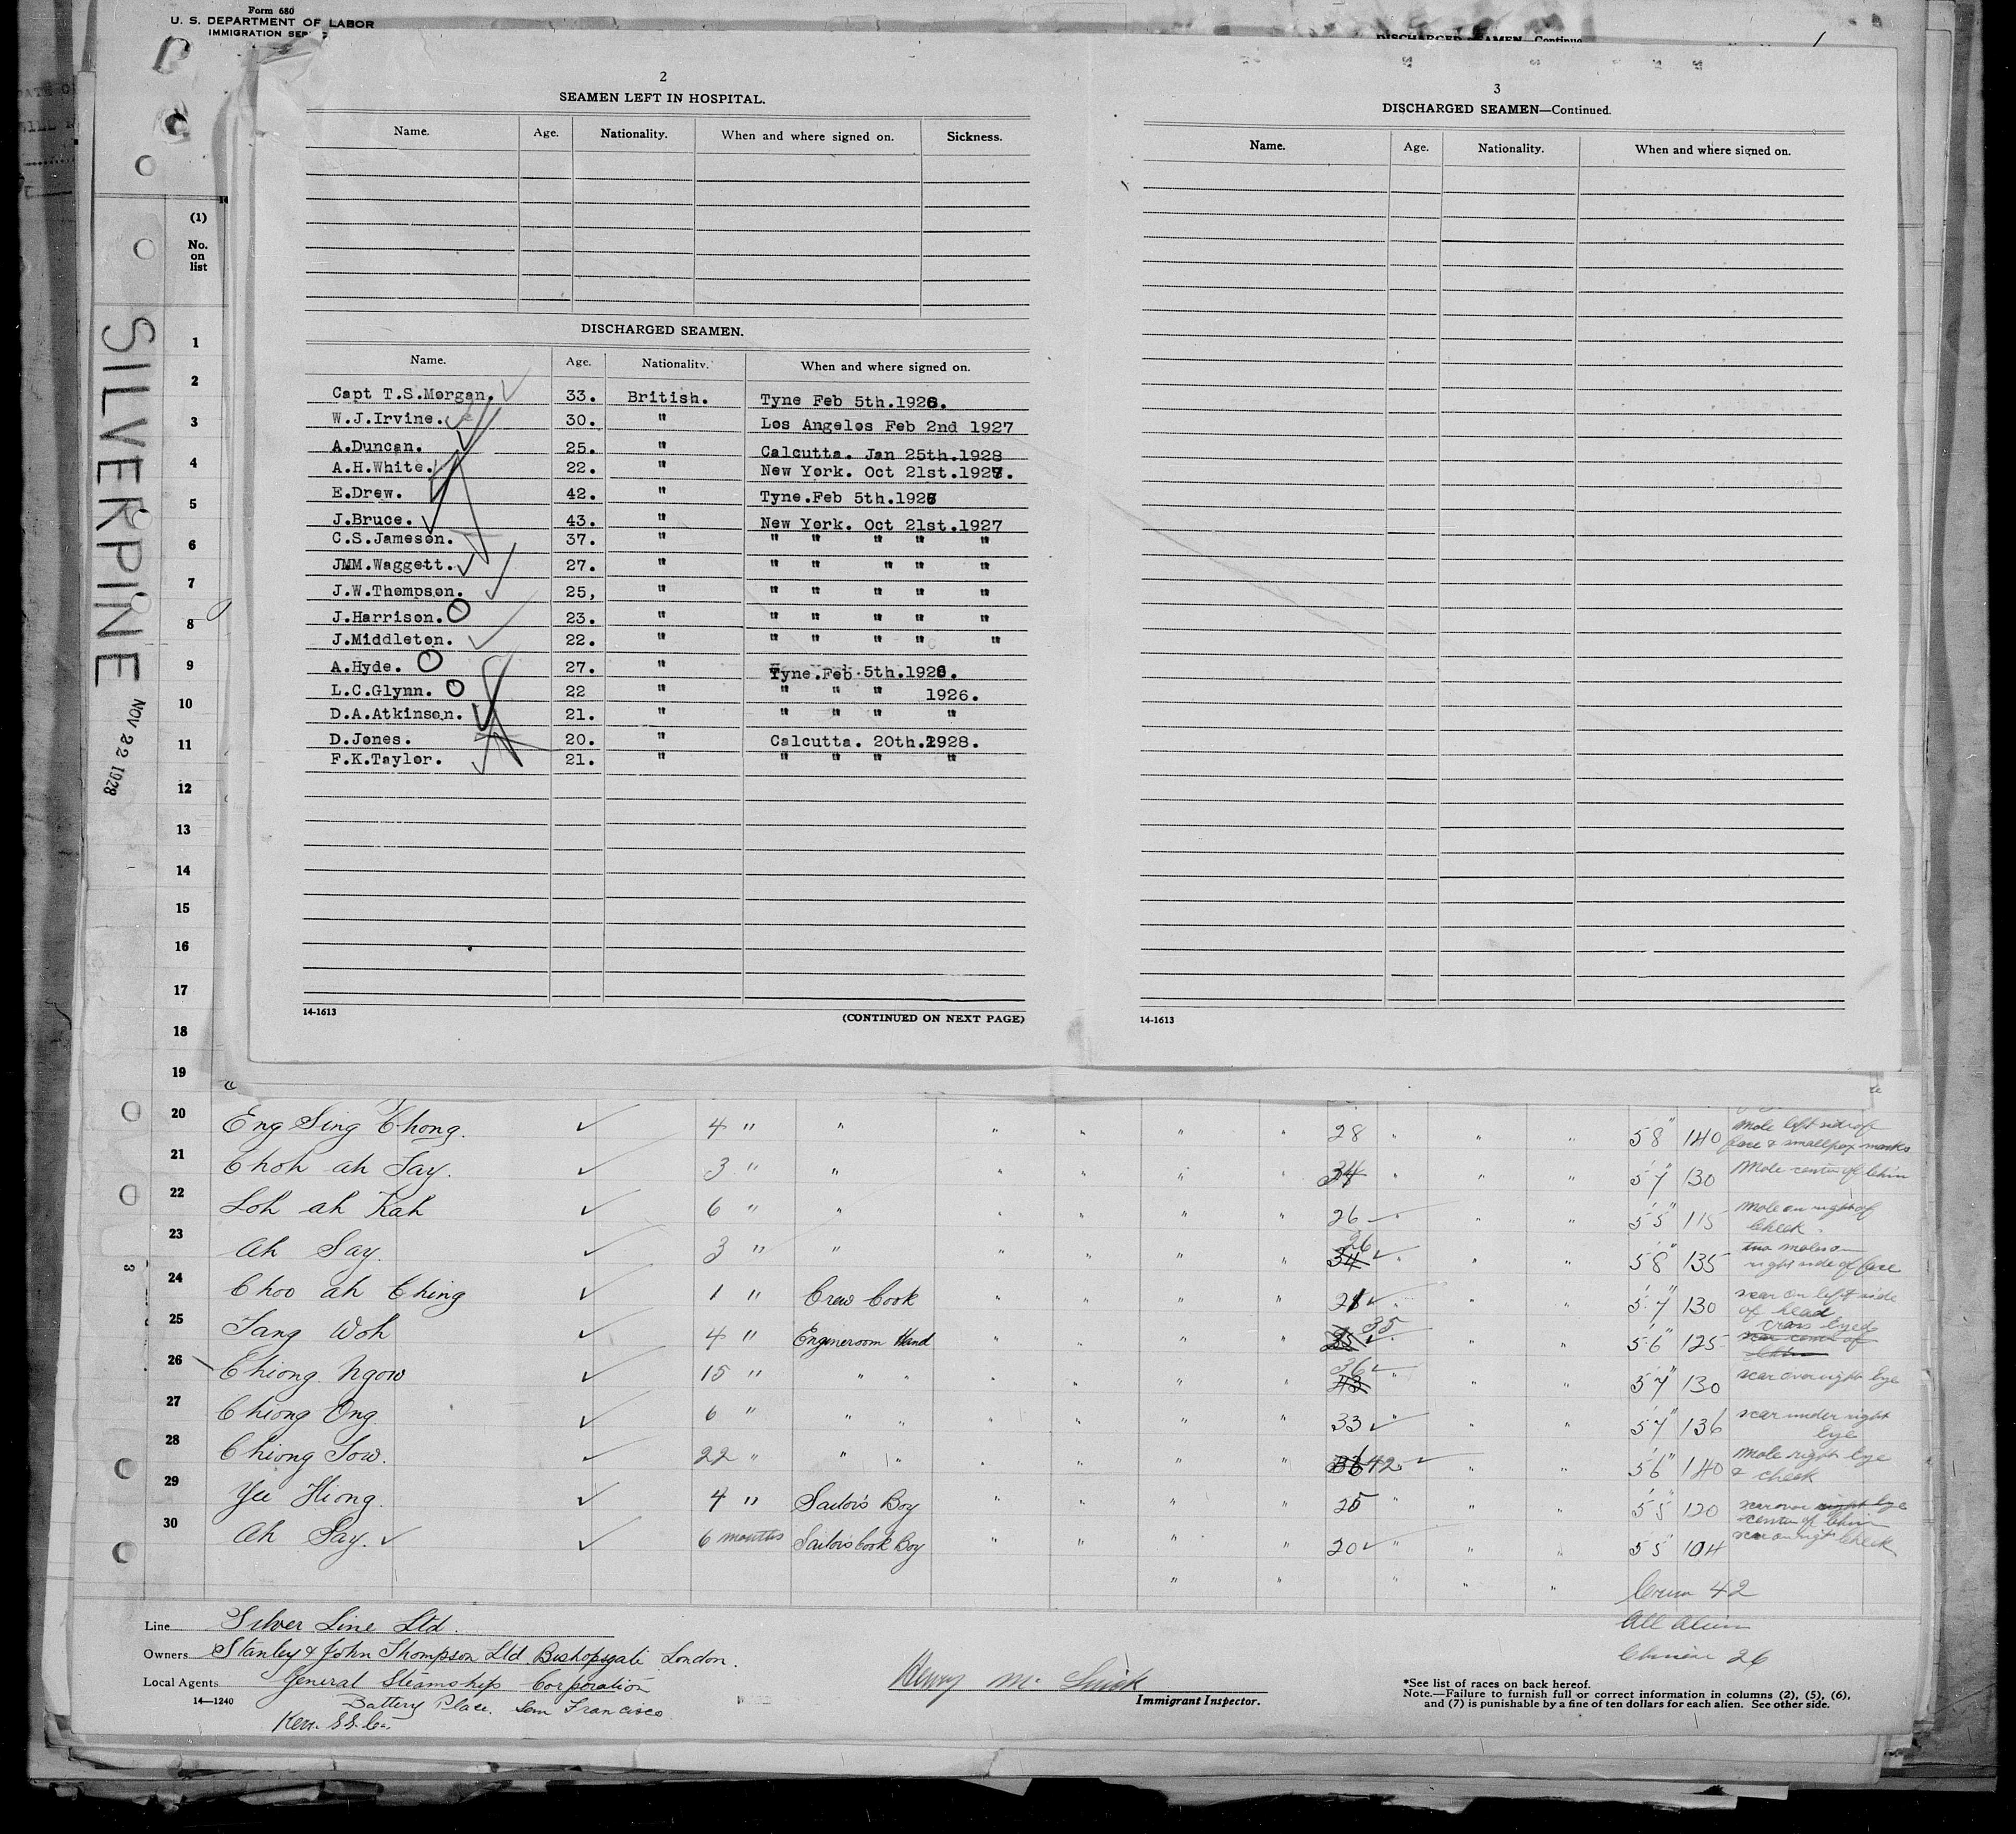 Form 680
U. S. DEPARTMENT OF LABOR
IMMIGRATION
(1)
No.
on
list
SILVERPINE
NOV 22 1928
2
SEAMEN LEFT IN HOSPITAL.
Name. Age. Nationality. When and where signed on. Sickness.
DISCHARGED SEAMEN.
Name. Age. Nationality. When and where signed on.
Capt T.S.Morgan. 33. British. Tyne Feb 5th.1926.
W.J.Irvine. 30. " Los Angelos Feb 2nd 1927
A.Duncan. 25. " Calcutta. Jan 25th.1928
A.H.White. 22. " New York. Oct 21st.1927.
E.Drew. 42. " Tyne.Feb 5th.1926
J.Bruce. 43. " New York. Oct 21st.1927
C.S.Jameson. 37. " " " " " "
JMM.Waggett. 27. " " " " " "
J.W.Thompson. 25, " " " " " "
J.Harrison. 23. " " " " " "
J.Middleton. 22. " " " " " "
A.Hyde. 27. " Tyne.Feb 5th.1926.
L.C.Glynn. 22 " " " " 1926.
D.A.Atkinson. 21. " " " " "
D.Jones. 20. " Calcutta. 20th.1928.
F.K.Taylor. 21. " " " " "
14-1613 (CONTINUED ON NEXT PAGE)
3
DISCHARGED SEAMEN—Continued.
Name. Age. Nationality. When and where signed on.
14-1613
1
2
3
4
5
6
7
8
9
10
11
12
13
14
15
16
17
18
19
20 Eng Sing Chong. 4 " " " " " " 28 " " " 5'8" 140 Mole left side of face & smallpox marks
21 Choh ah Say. 3 " " " " " " 34 " " " 5'7" 130 Mole center of chin
22 Loh ah Kah 6 " " " " " " 26 " " " 5'5" 115 mole on right of cheek
23 Ah Say. 3 " " " " " " 34 26 " " " 5'8" 135 two moles on right side of face
24 Choo ah Ching 1 " Crew Cook " " " " 21 " " " 5'7" 130 scar on left side of head
25 Tang Woh 4 " Engineroom Hand " " " 35 " " " 5'6" 125 cross eyed
26 Chiong Ngow 15 " " " " " " " 43 36 " " " 5'7" 130 scar over right eye
27 Chiong Ong 6 " " " " " " " 33 " " " 5'7" 136 scar under right eye
28 Chiong Sow. 22 " " " " " " " 36 42 " " " 5'6" 140 Mole right eye & cheek
29 Yee Hiong. 4 " Sailors Boy " " " " 25 " " " 5'5" 120 scar over right eye center of chin
30 Ah Say. 6 months Sailors Cook Boy " " " " 20 " " " 5'5" 104 scar on right cheek
Crew 42
All Alien
Chinese 26
Line Silver Line Ltd.
Owners Stanley & John Thompson Ltd Bishopsgate London.
Local Agents General Steamship Corporation
14—1240 Battery Place. San Francisco
Kerr S.S. Co.
Henry Mc
Immigrant Inspector.
*See list of races on back hereof.
Note.—Failure to furnish full or correct information in columns (2), (5), (6),
and (7) is punishable by a fine of ten dollars for each alien. See other side.